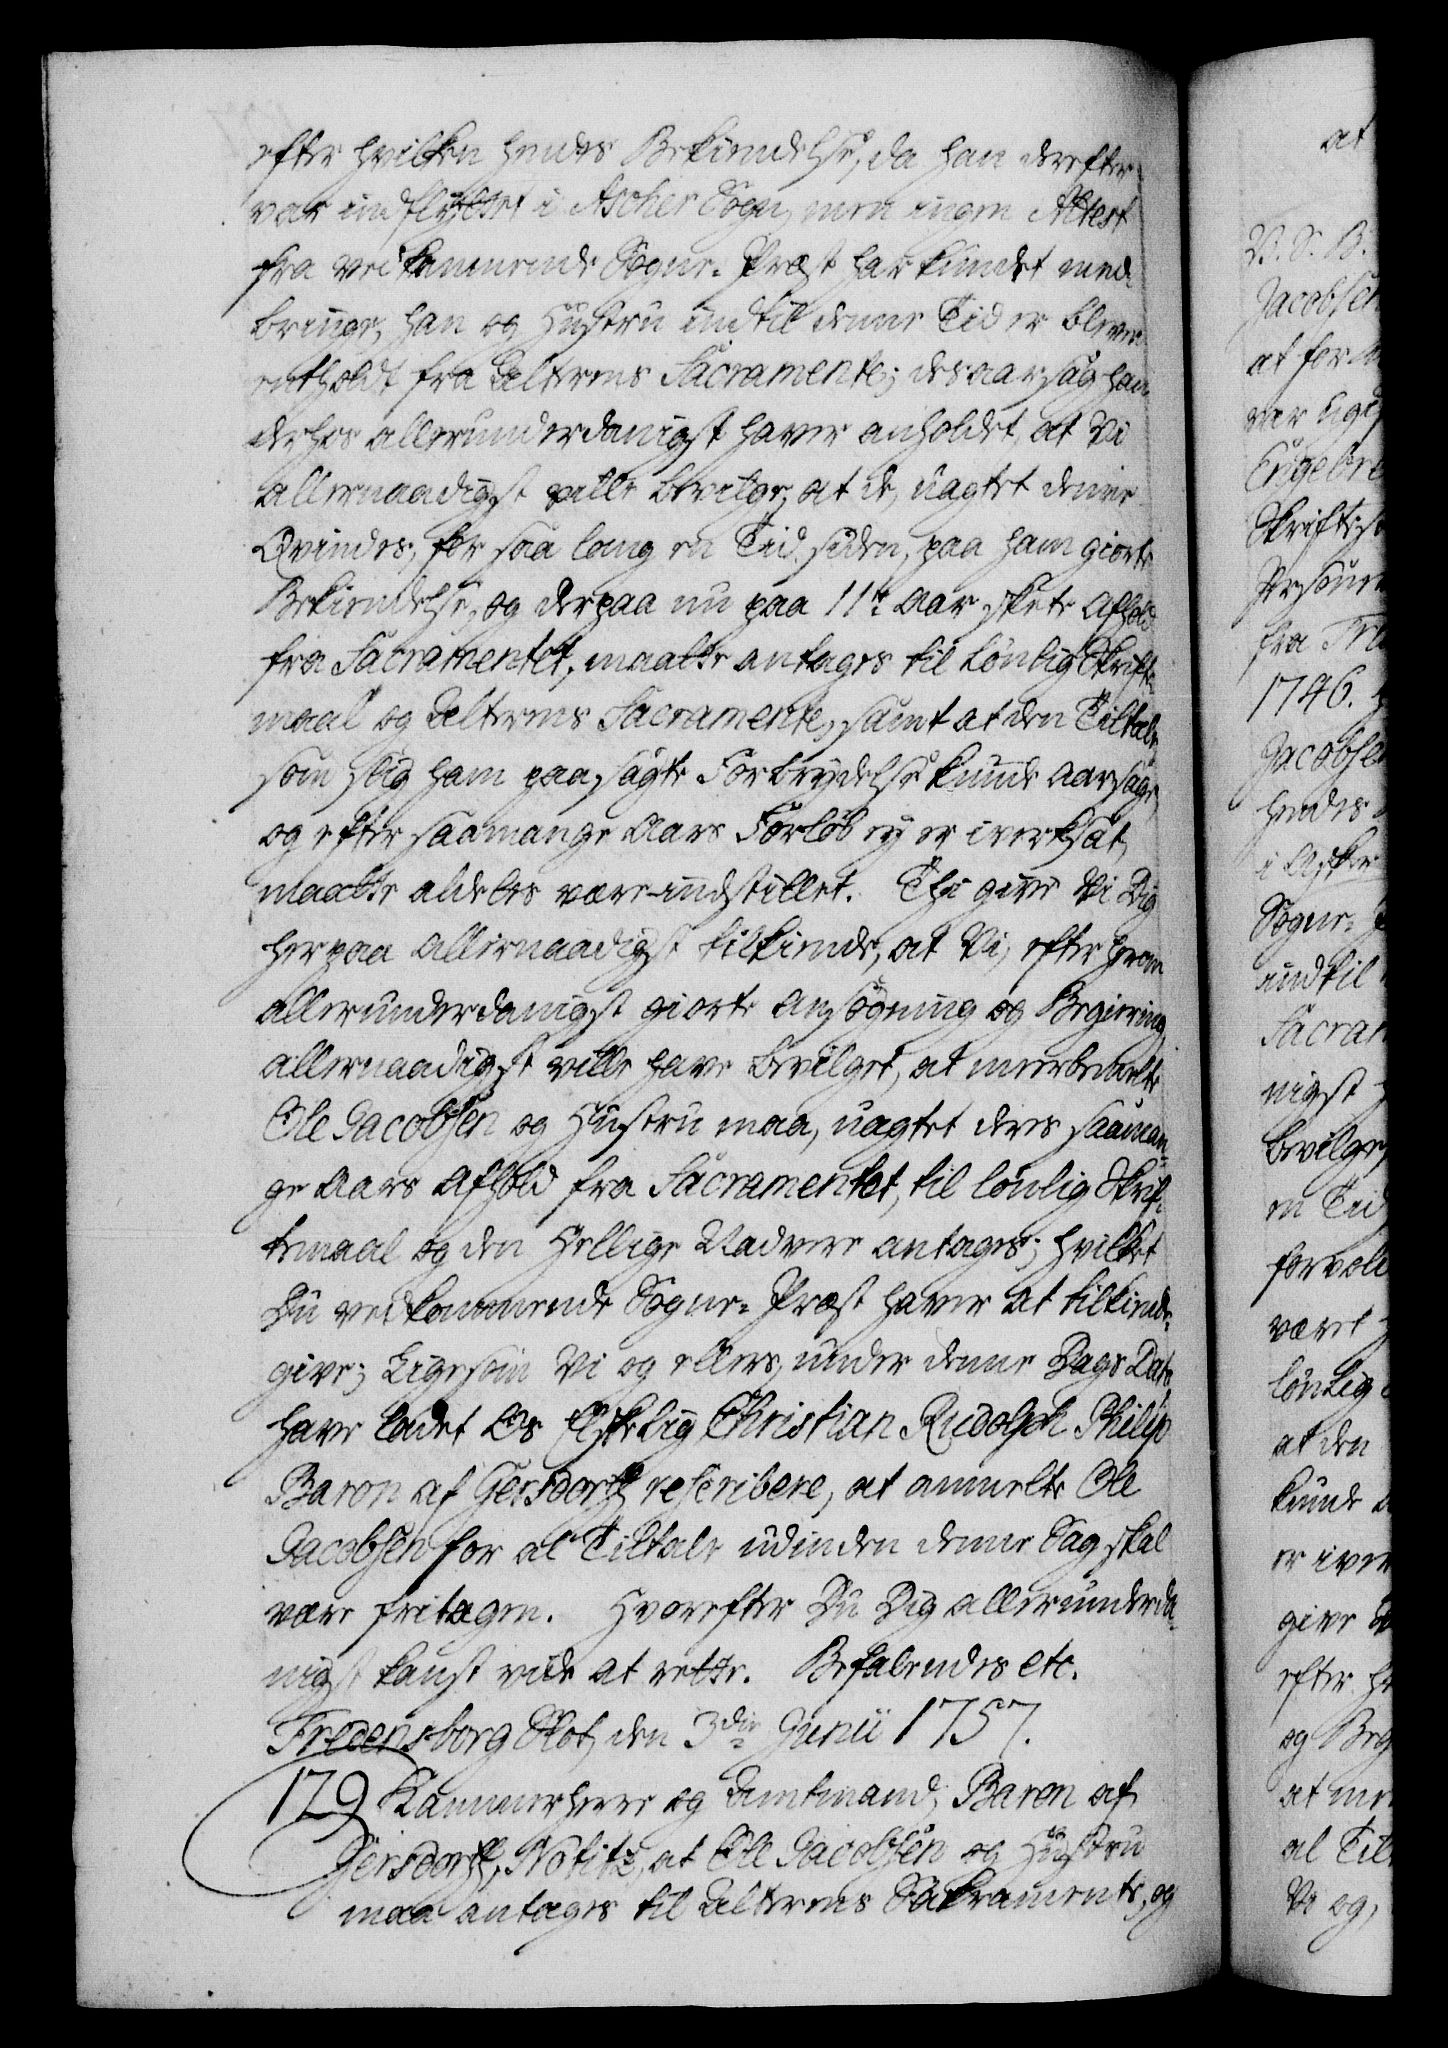 efter hvilken hendes Bekiendelse, da han derefter
var indflyttet i Ascher Sogn, men ingen Attest
fra vedkommende Sogne-Præst har kundet med-
bringe, han og Hustru indtil denne Tid er bleven
entholdt fra Alterens Sacramente; desaarsag han
derhos allerunderdanigst haver anholdet, at Vi
allernaadigst ville bevilge, at de, uagtet denne
Qvindes, for saa lang en Tid siden, paa ham giorte
Bekiendelse, og derpaa nu paa 11te Aar skete Afhold
fra Sacramentet, maatte antages til Lønlig Skrifte-
maal og Alterens Sacramente, samt at den Tiltale,
som slig ham paasagte Forbrydelse kunde aarsage,
og efter saamange Aars Forløb ey er iverksat,
maatte aldeles være indstillet. Thi give Vi Dig
herpaa allernaadigst tilkiende, at Vi, efter hans
allerunderdanigst giorte Ansøgning og Begiering,
allernaadigst ville have bevilget, at meerbemelte
Ole Jacobsen og Hustru maa, uagtet deres saaman-
ge Aars Afhold fra Sacramentet, til lønlig Skrif-
temaal og den Hellige Nadvere antages; hvilket
Du vedkommende Sogne-Præst haver at tilkiende-
give; Ligesom Vi og ellers, under denne Dags Dato
have ladet Os Elskelig Christian Rudolph Philip
Baron af Gersdorff rescribere, at anmelte Ole
Jacobsen for al Tiltale udinden denne Sag skal
være fritagen. Hvorefter Du Dig allerunderda-
nigst kanst vide at rette. Befalendes etc.
Fredensborg Slot, den 3die Junii 1757.
179 Kammerherre og Amtmand, Baron af
Gersdorff, Notitz, at Ole Jacobsen og Hustru
maa antages til Alterens Sakramente, og
at
V. S. B.
Jacobsen
1746.
Jacobsen
hendes
i Asker
Sogne-
indtil
nigst
bevilge,
en Tid
været
lønlig
at den
kunde
give
efter
og
at
al
Vi og,